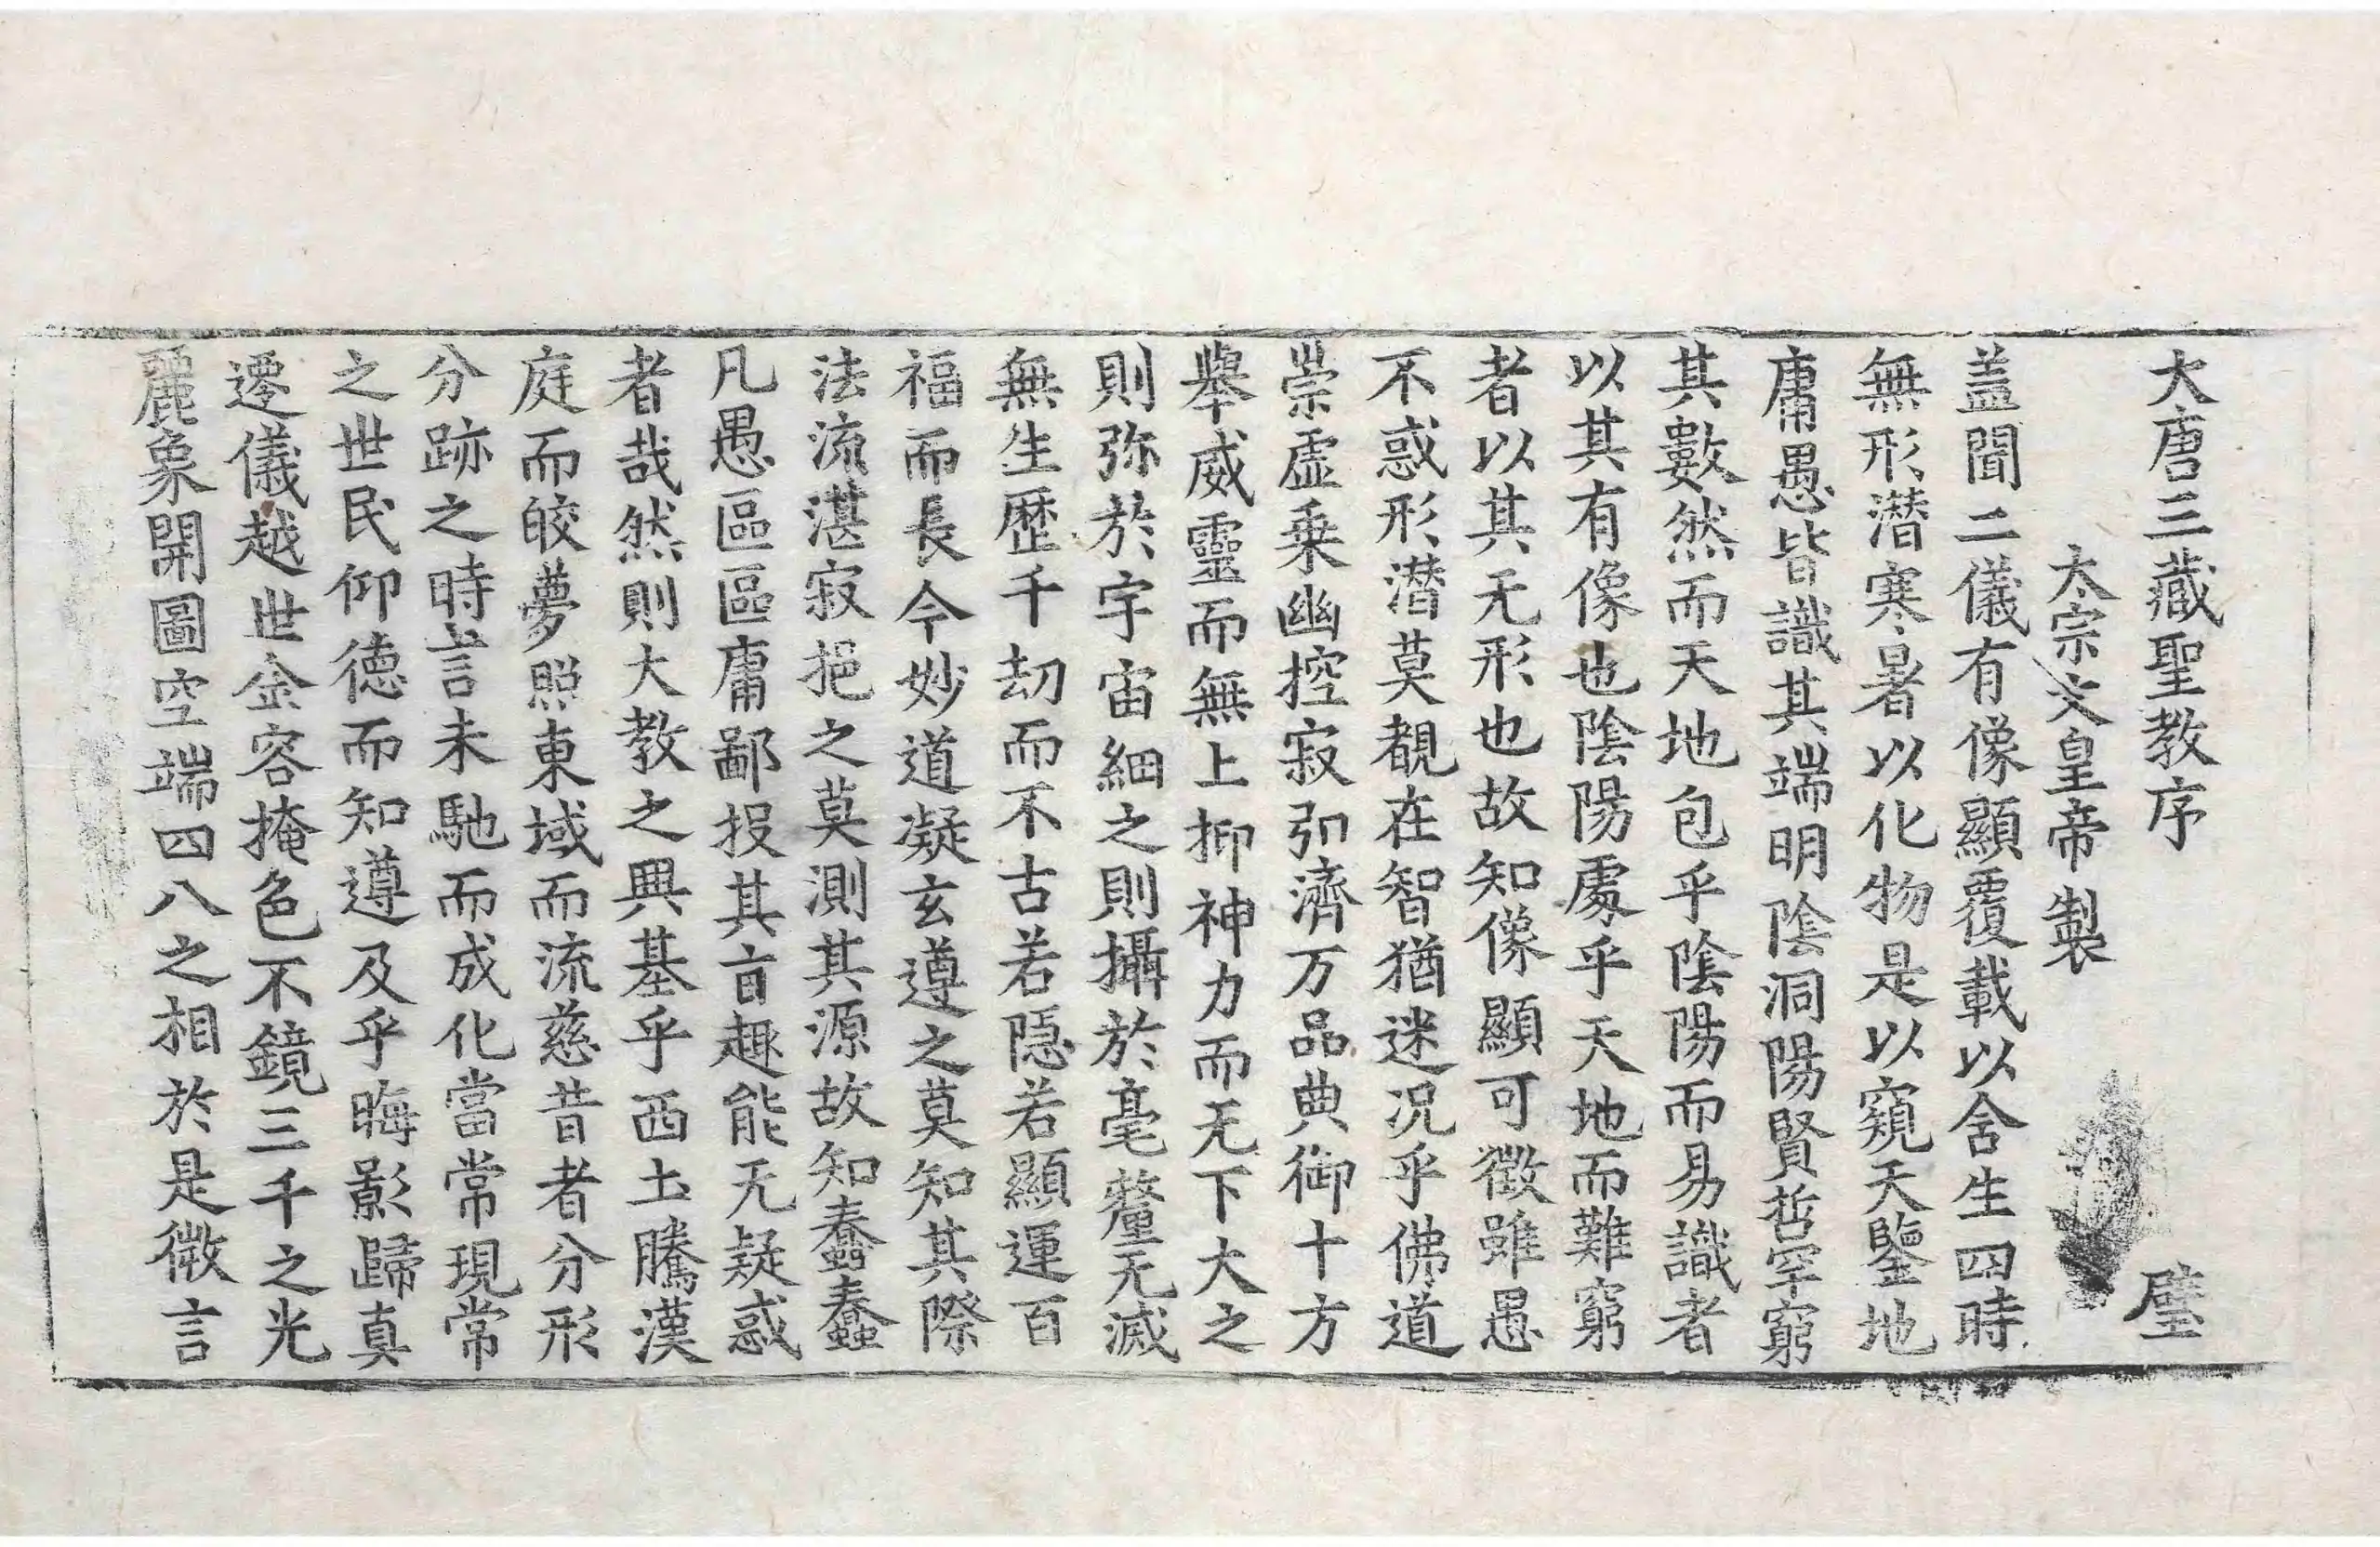 大唐三藏聖教序 璧
太宗文皇帝製
盖聞二儀有像顯覆載以含生四時
無形潜寒暑以化物是以窺天鑒地
庸愚皆識其端明陰洞陽賢哲罕窮
其數然而天地包乎陰陽而易識者
以其有像也陰陽處乎天地而難窮
者以其无形也故知像顯可徵雖愚
不惑形潜莫覩在智猶迷况乎佛道
崇虛乗幽控寂弘濟万品典御十方
舉威靈而無上抑神力而无下大之
則弥於宇宙細之則攝於毫釐无滅
無生歴千劫而不古若隠若顯運百
福而長今妙道凝玄遵之莫知其際
法流湛寂挹之莫測其源故知蠢蠢
凡愚區區庸鄙投其旨趣能无疑惑
者哉然則大教之興基乎西土騰漢
庭而皎夢照東域而流慈昔者分形
分跡之時言未馳而成化當常現常
之世民仰德而知遵及乎晦影歸真
遷儀越世金容掩色不鏡三千之光
麗象開圖空端四八之相於是微言